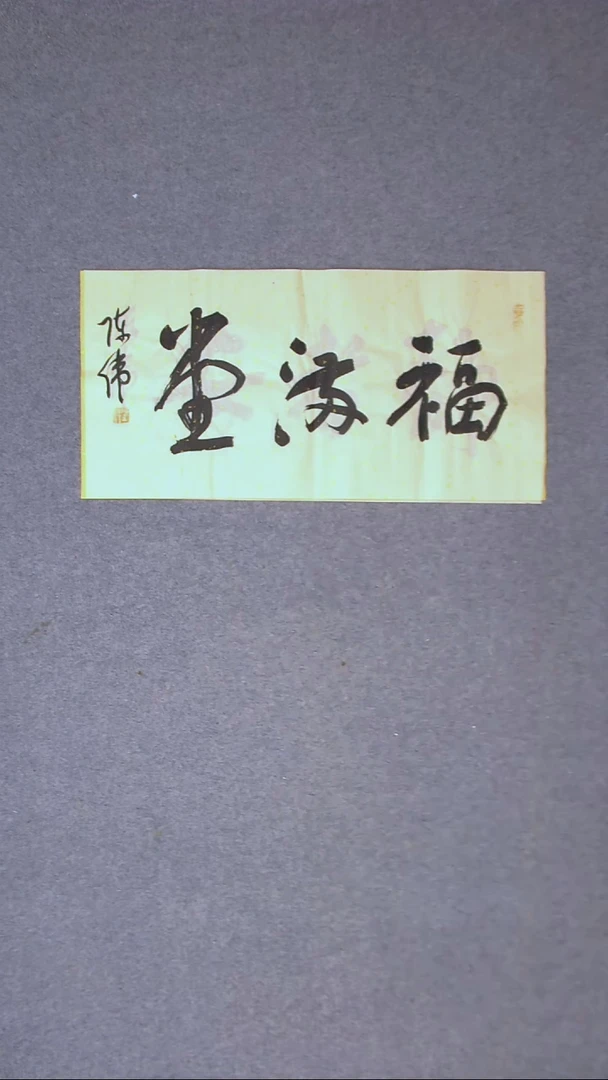 福满堂
陈伟